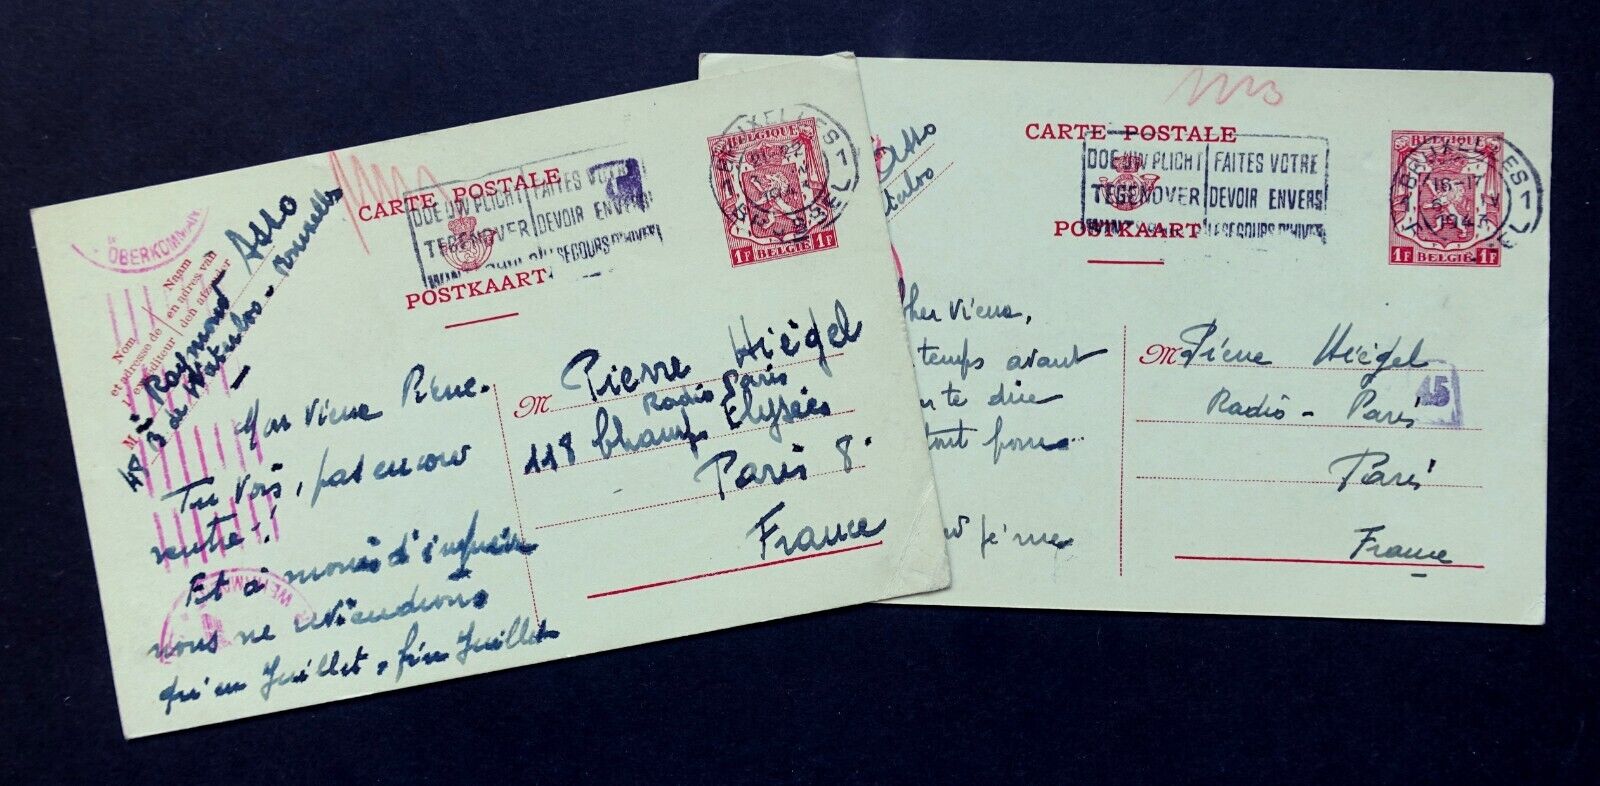 CARTE POSTALE
POSTKAART
BELGIQUE
1F BELGIË
BRUXELLES 1
BRUSSEL 1
DOE UW PLICHT
TEGENOVER
FAITES VOTRE
DEVOIR ENVERS
LE SECOURS D'HIVER
OBERKOMMAN
Nom
et adresse de
l'expéditeur
Naam
en adres van
den afzender
M Raymond Asso
de Waterloo - Bruxelles
Mon vieux Pierre.
Tu vois, pas encore
rentré!
Et à moins d'imprévu
nous ne reviendrons
qu'en Juillet, fin Juillet
M Pierre Hiégel
Radio Paris
118 Champs Elysées
Paris 8e
France
Asso
CARTE POSTALE
POSTKAART
BELGIQUE
1F BELGIË 1F
BRUXELLES 1
16-17
DOE UW PLICHT
TEGENOVER
FAITES VOTRE
DEVOIR ENVERS
LE SECOURS D'HIVER
cher vieux,
temps avant
te dire
tout pour
M Pierre Hiégel
Radio - Paris
Paris
France
45